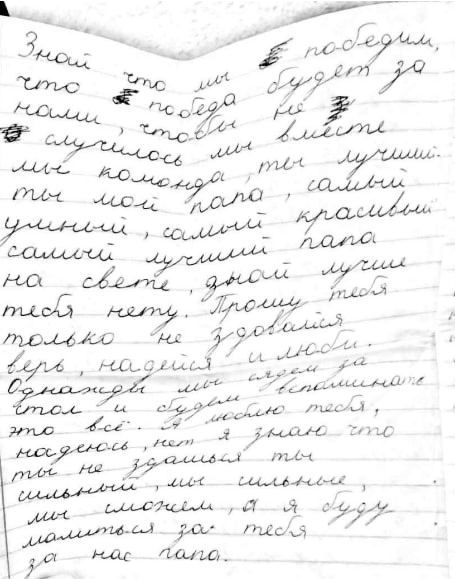 Знай что мы победим,
что победа будет за
нами, чтобы не
случилось мы вместе
мы команда, ты лучший.
ты мой папа, самый
умный, самый красивый
самый лучший папа
на свете, знай лучше
тебя нету. Прошу тебя
только не здовайся
верь, надейся и люби.
Однажды мы сядем за
стол и будем вспоминать
это всё. Я люблю тебя,
надеюсь, нет я знаю что
ты не здашься ты
сильный, мы сильные,
мы сможем, а я буду
малиться за тебя
за нас папа.